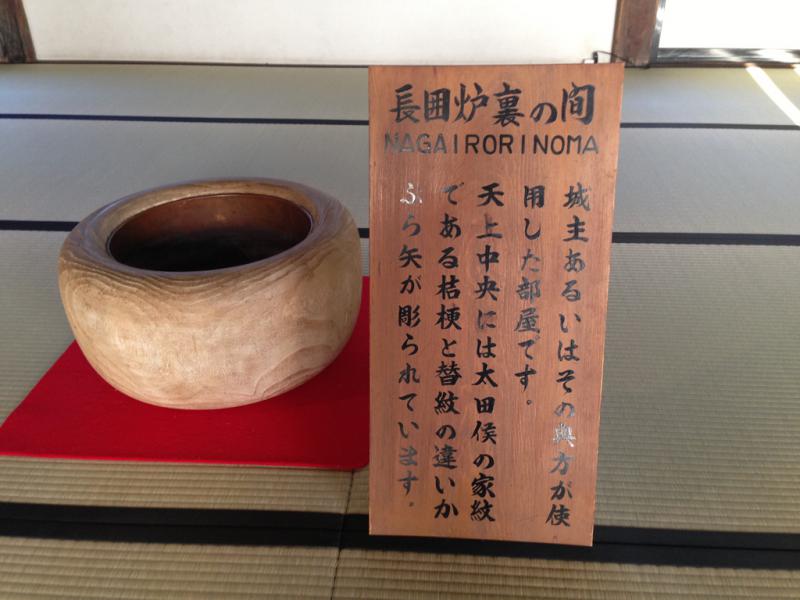 長囲炉裏の間
NAGAIRORINOMA
城主あるいはその奥方が使
用した部屋です。
天上中央には太田侯の家紋
である桔梗と替紋の違いか
ぶら矢が彫られています。